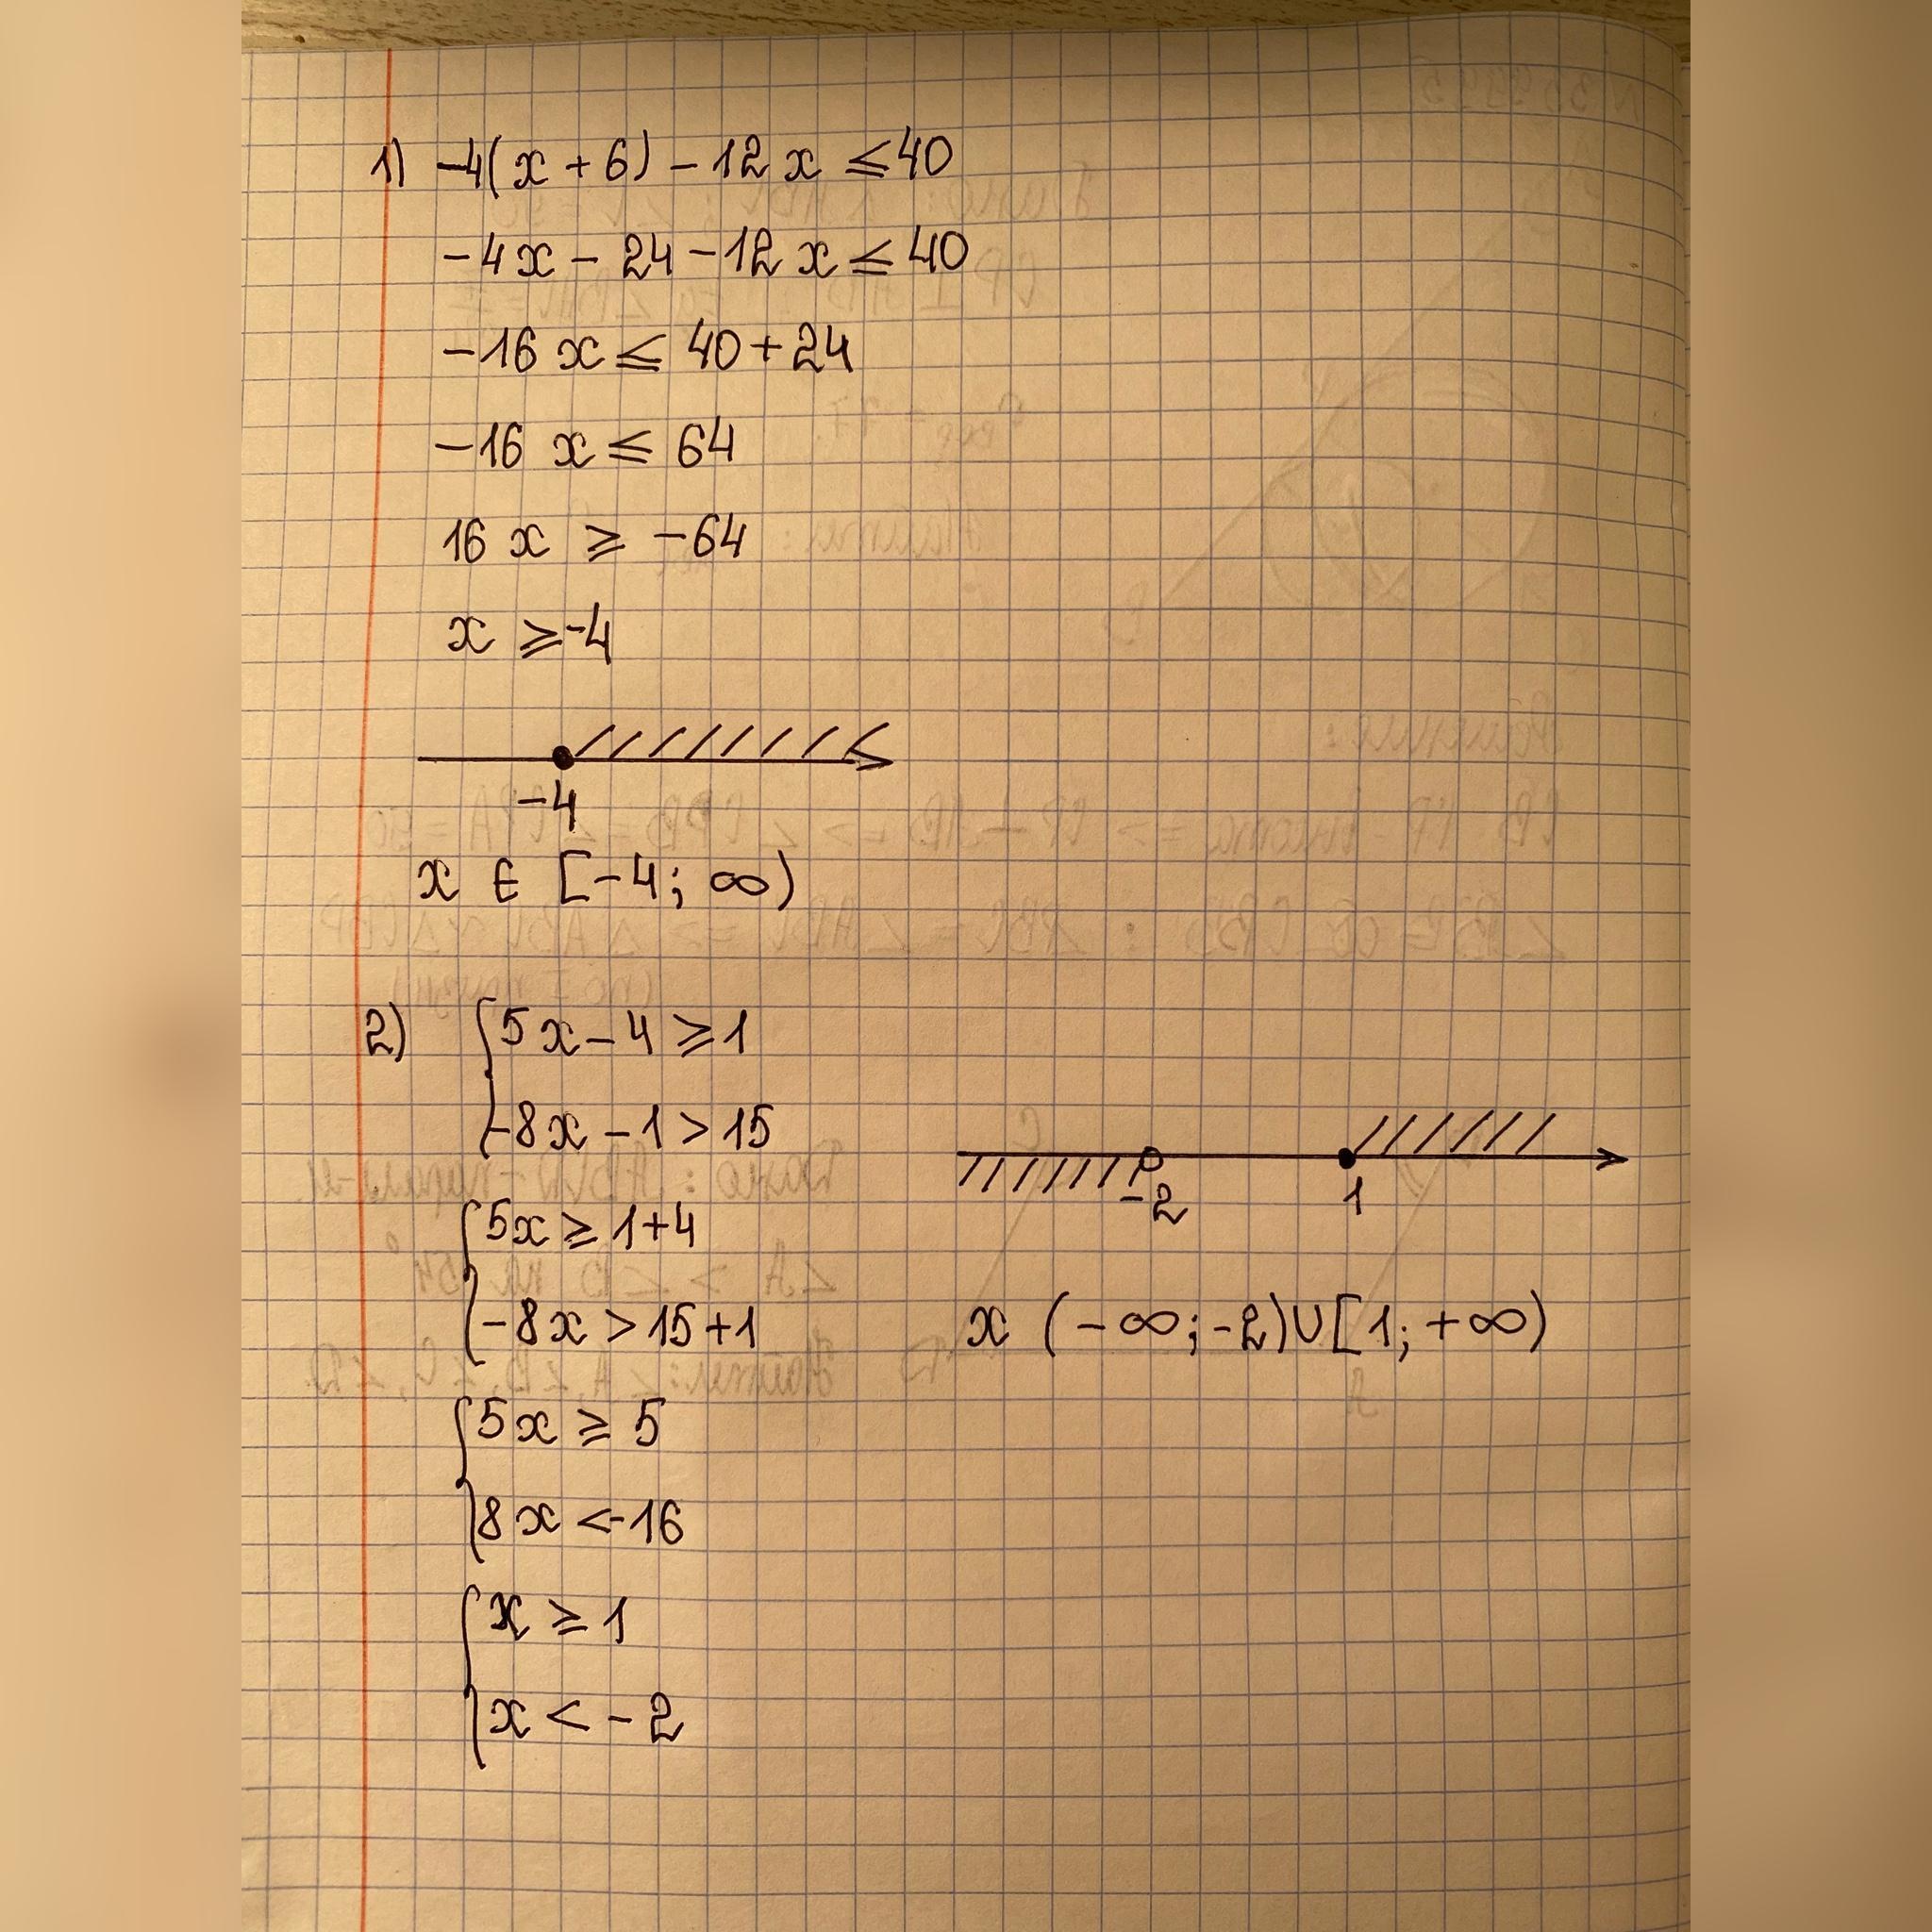 1) -4(x + 6) - 12x ≤ 40
-4x - 24 - 12x ≤ 40
-16x ≤ 40 + 24
-16x ≤ 64
16x ≥ -64
x ≥ -4
-4
x ∈ [-4; ∞)
2) {5x - 4 ≥ 1
-8x - 1 > 15
{5x ≥ 1 + 4
-8x > 15 + 1
{5x ≥ 5
8x < -16
{x ≥ 1
x < -2
-2 1
x (-∞; -2) ∪ [1; +∞)